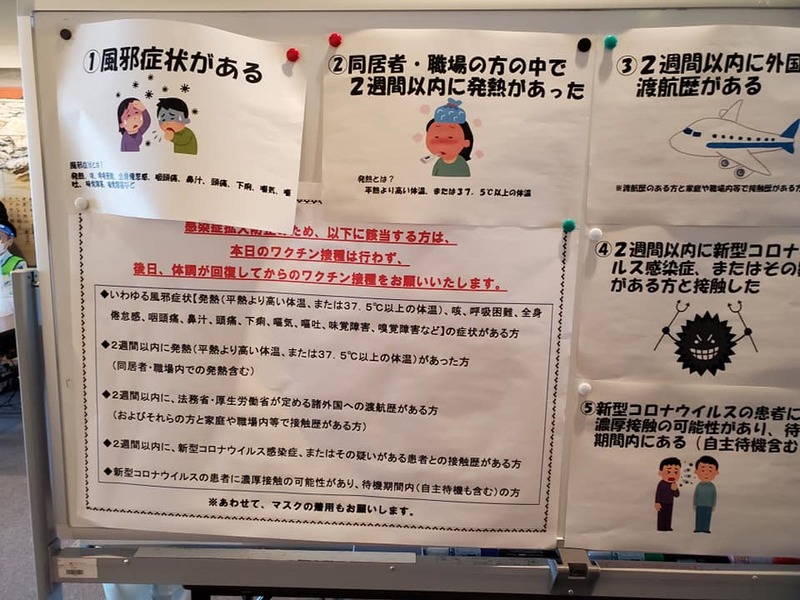 ①風邪症状がある
風邪症状とは?
発熱、咳、呼吸困難、全身倦怠感、咽頭痛、鼻汁、頭痛、下痢、嘔気、嘔
吐、味覚障害、嗅覚障害など
②同居者・職場の方の中で
2週間以内に発熱があった
発熱とは?
平熱より高い体温、または37.5℃以上の体温
③2週間以内に外国
渡航歴がある
※渡航歴のある方と家庭や職場内等で接触歴がある方
感染症拡大防止のため、以下に該当する方は、
本日のワクチン接種は行わず、
後日、体調が回復してからのワクチン接種をお願いいたします。
◆いわゆる風邪症状【発熱(平熱より高い体温、または37.5℃以上の体温)、咳、呼吸困難、全身
倦怠感、咽頭痛、鼻汁、頭痛、下痢、嘔気、嘔吐、味覚障害、嗅覚障害など】の症状がある方
◆2週間以内に発熱(平熱より高い体温、または37.5℃以上の体温)があった方
(同居者・職場内での発熱含む)
◆2週間以内に、法務省・厚生労働省が定める諸外国への渡航歴がある方
(およびそれらの方と家庭や職場内等で接触歴がある方)
◆2週間以内に、新型コロナウイルス感染症、またはその疑いがある患者との接触歴がある方
◆新型コロナウイルスの患者に濃厚接触の可能性があり、待機期間内(自主待機も含む)の方
※あわせて、マスクの着用もお願いします。
④2週間以内に新型コロナ
ルス感染症、またはその
がある方と接触した
⑤新型コロナウイルスの患者に
濃厚接触の可能性があり、待
期間内にある(自主待機含む